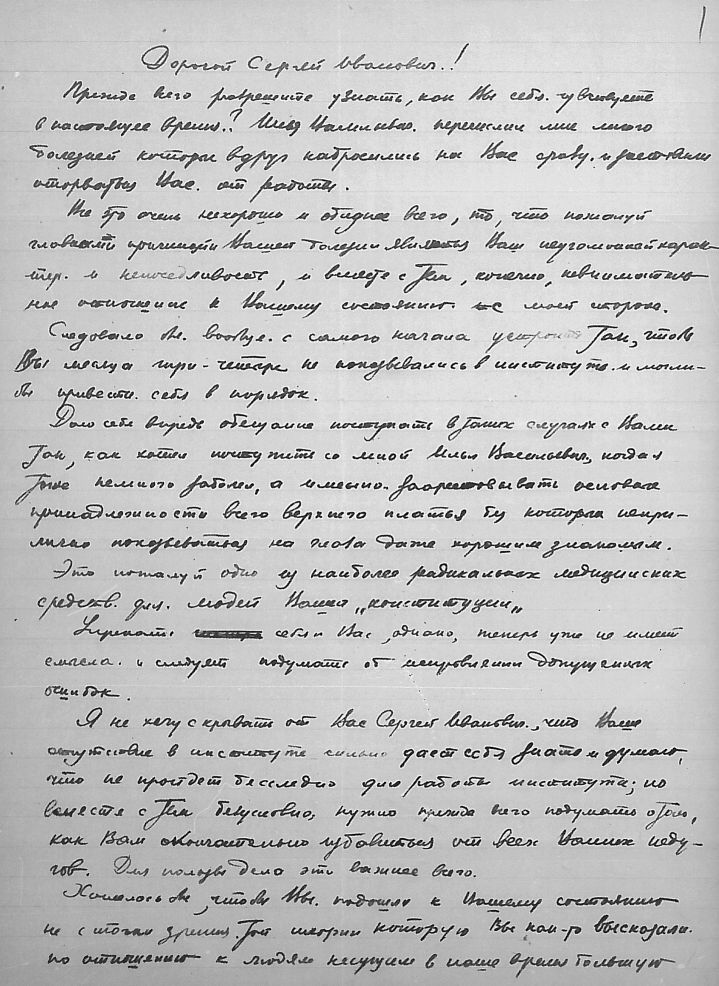 1
Дорогой Сергей Иванович!
Прежде всего разрешите узнать, как Вы себя чувствуете
в настоящее время? Илья Васильевич перечислил мне много
болезней которые вдруг набросились на Вас сразу и заставили
оторваться Вас от работы.
Все это очень нехорошо и обиднее всего, то, что пожалуй
главной причиной Вашей болезни является Ваш неугомонный харак-
тер и непоседливость, и вместе с тем, конечно, невниматель-
ное отношение к Вашему состоянию с моей стороны.
Следовало бы вообще с самого начала устроить так, чтобы
Вы месяца три-четыре не показывались в институте и могли
бы привести себя в порядок.
Даю себе впредь обещание поступать в таких случаях с Вами
так, как хотел поступить со мной Илья Васильевич, когда я
тоже немного заболел, а именно заарестовывать основные
принадлежности всего верхнего платья без которых непри-
лично показываться на глаза даже хорошим знакомым.
Это пожалуй одно из наиболее радикальных медицинских
средств для людей Вашей „конституции„
Упрекать себя и Вас, однако, теперь уже не имеет
смысла и следует подумать об исправлении допущенных
ошибок.
Я не хочу скрывать от Вас Сергей Иванович, что Ваше
отсутствие в институте сильно дает себя знать и думаю,
что не пройдет бесследно для работы института; но
вместе с тем безусловно, нужно прежде всего подумать о том,
как Вам окончательно избавиться от всех Ваших неду-
гов. Для пользы дела это важнее всего.
Хотелось бы, чтобы Вы подошли к Вашему состоянию
не с точки зрения той теории которую Вы как-то высказали
по отношению к людям несущим в наше время большую